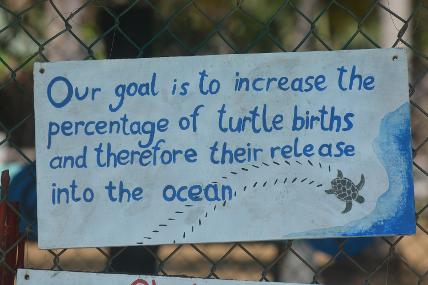 Our goal is to increase the
percentage of turtle births
and therefore their release
into the ocean